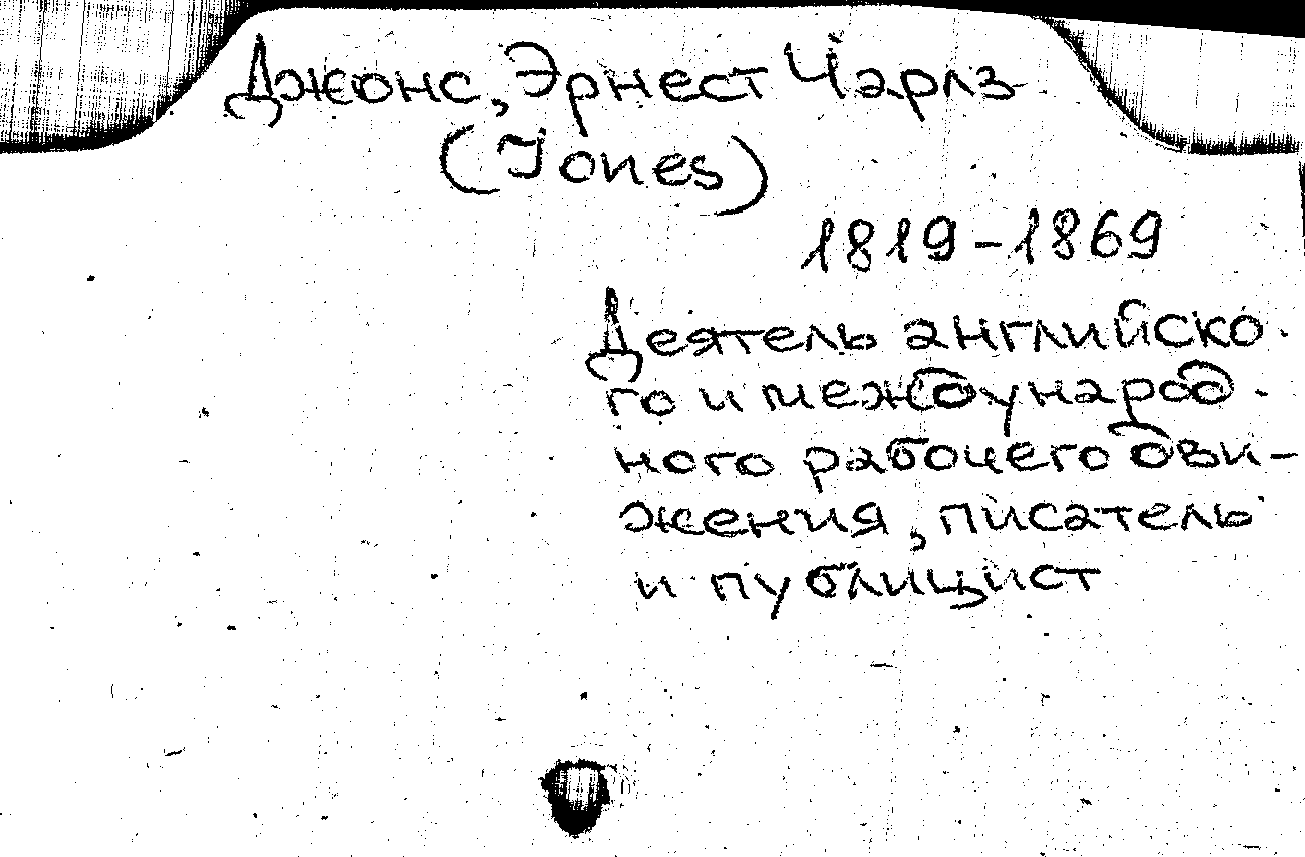 Джонс, Эрнест Чарлз
(Jones)
1819-1869
Деятель английско-
го и международ-
ного рабочего дви-
жения, писатель
и публицист